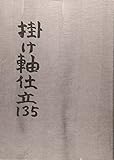 掛け軸仕立
135